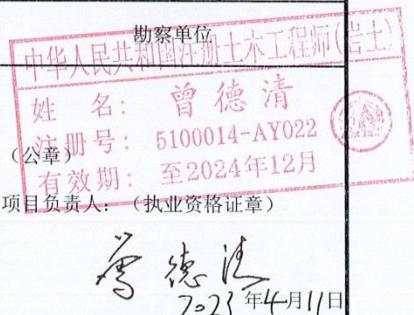 勘察单位
中华人民共和国注册土木工程师(岩土)
姓 名: 曾德清
注册号: 5100014-AY022
(公章)
有效期: 至2024年12月
项目负责人: (执业资格证章)
曾德清
2023年4月11日